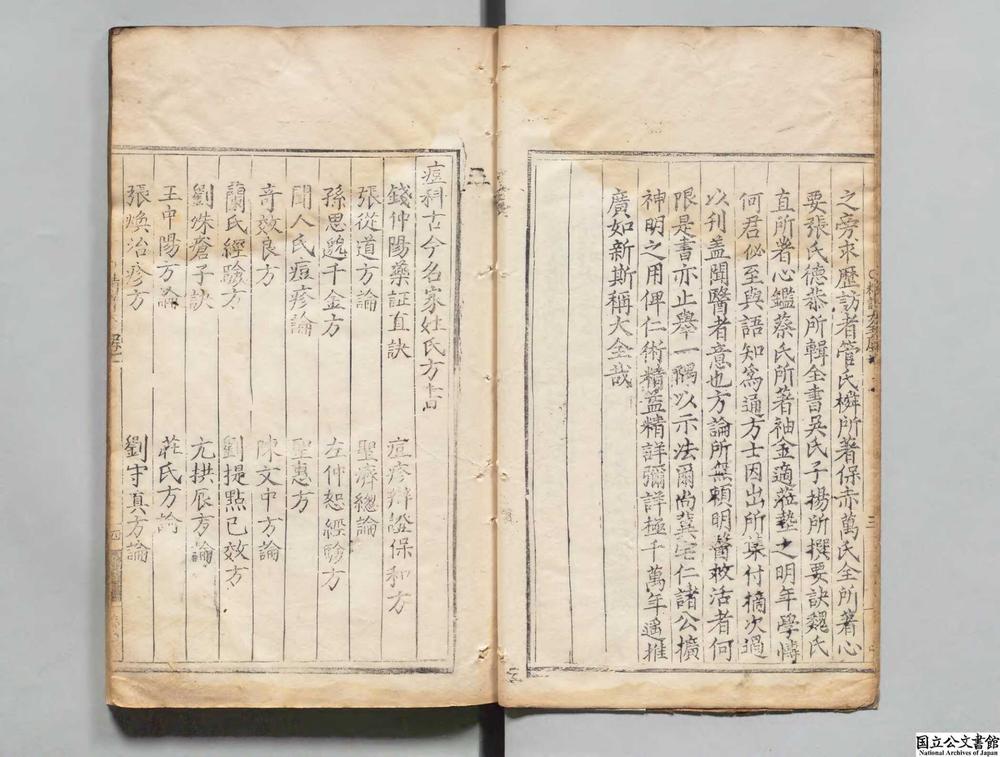 之旁求歷訪者管氏橓所著保赤萬氏全所著心
要張氏德恭所輯全書吳氏子揚所撰要訣魏氏
直所著心鑑蔡氏所著袖金適蒞塾之明年學博
何君佖至與語知爲通方士因出所集付摘次過
以刊盖聞醫者意也方論所無頼明醫救活者何
限是書亦止舉一隅以示法爾尚冀宅仁諸公擴
神明之用俾仁術精益精詳彌詳極千萬年遥推
廣如新斯稱大全哉
三
痘科古今名家姓氏方
錢仲陽藥証直訣 痘疹辯證保和方
張從道方論 聖濟總論
孫思邈千金方 左仲恕經驗方
聞人氏痘疹論 聖惠方
奇效良方 陳文中方論
蘭氏經驗方 劉提點已效方
劉洙瘡子訣 亢拱辰方論
王中陽方論 莊氏方論
張煥治疹方 劉守真方論
国立公文書館
National Archives of Japan